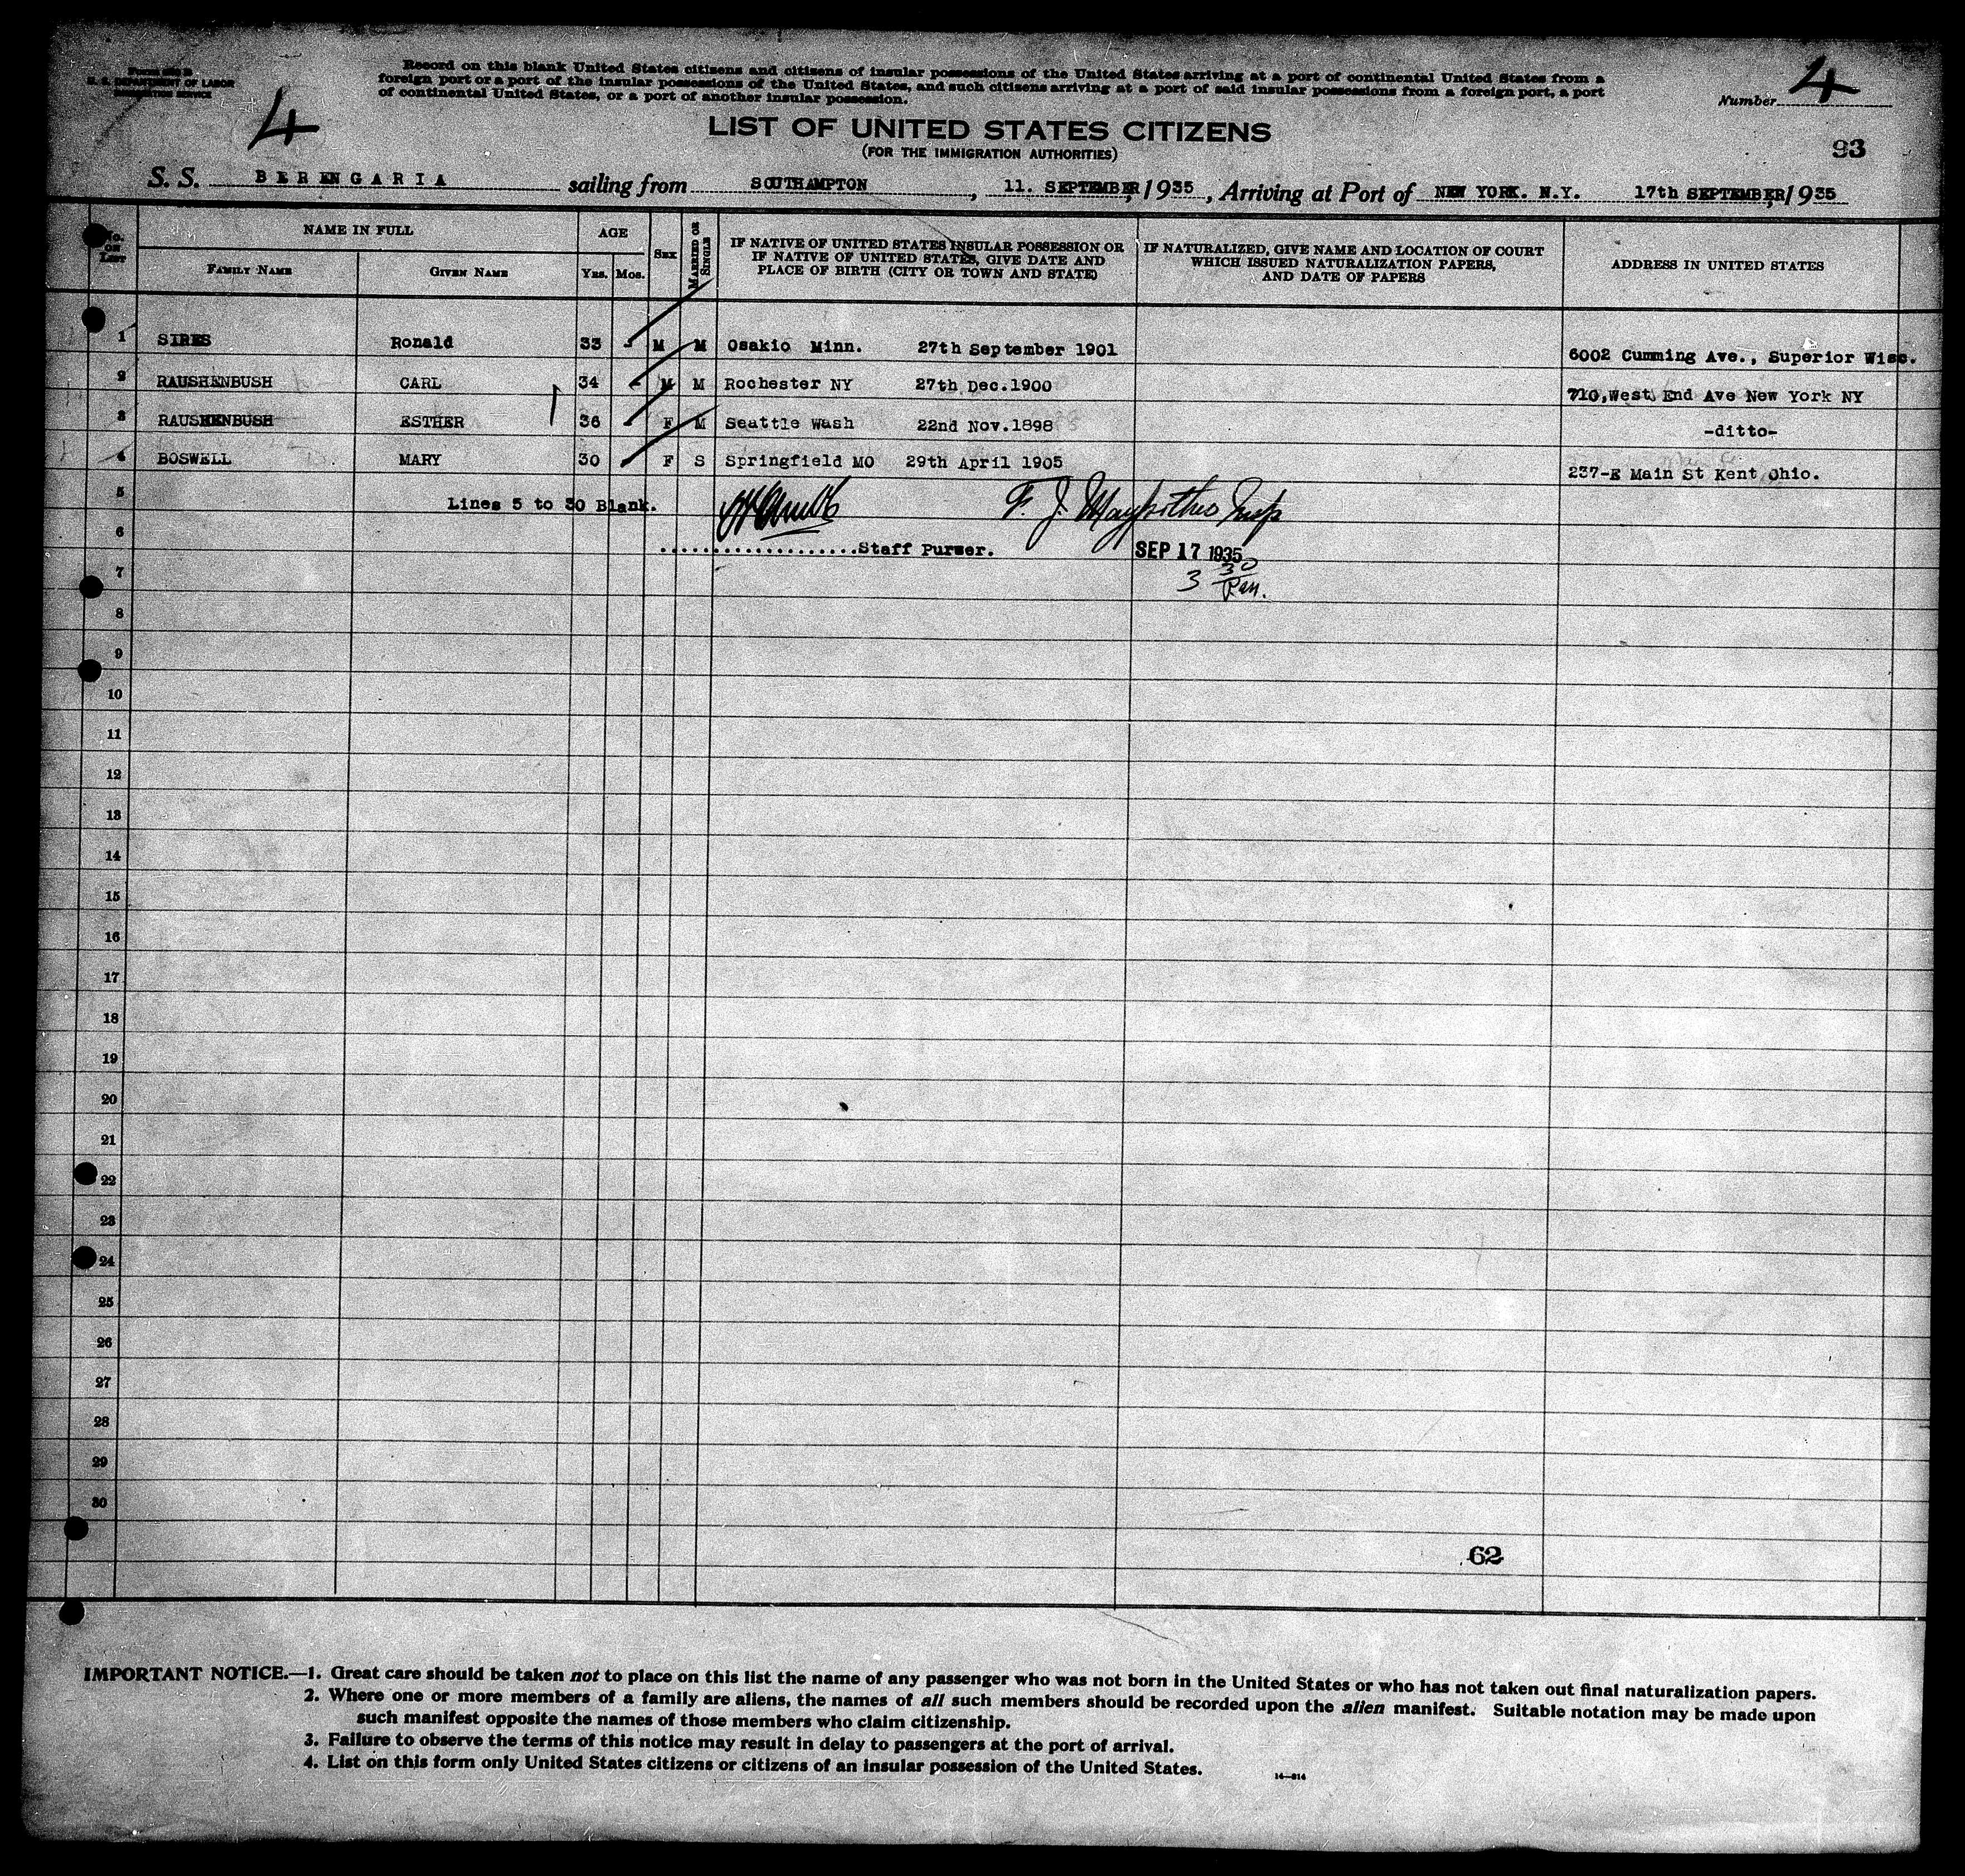 U. S. DEPARTMENT OF LABOR
IMMIGRATION SERVICE
Record on this blank United States citizens and citizens of insular possessions of the United States arriving at a port of continental United States from a
foreign port or a port of the insular possessions of the United States, and such citizens arriving at a port of said insular possessions from a foreign port, a port
of continental United States, or a port of another insular possession.
4
Number 4
LIST OF UNITED STATES CITIZENS
(FOR THE IMMIGRATION AUTHORITIES)
93
S. S. BERENGARIA sailing from SOUTHAMPTON, 11. SEPTEMBER, 1935, Arriving at Port of NEW YORK. N.Y. 17th SEPTEMBER, 1935
No. ON LIST
NAME IN FULL
FAMILY NAME GIVEN NAME
AGE
YRS. MOS.
SEX
MARRIED OR SINGLE
IF NATIVE OF UNITED STATES INSULAR POSSESSION OR
IF NATIVE OF UNITED STATES, GIVE DATE AND
PLACE OF BIRTH (CITY OR TOWN AND STATE)
IF NATURALIZED, GIVE NAME AND LOCATION OF COURT
WHICH ISSUED NATURALIZATION PAPERS,
AND DATE OF PAPERS
ADDRESS IN UNITED STATES
1 SIRES Ronald 33 - M M Osakio Minn. 27th September 1901 6002 Cumming Ave., Superior Wisc.
2 RAUSHENBUSH CARL 34 - M M Rochester NY 27th Dec.1900 710,West End Ave New York NY
3 RAUSHENBUSH ESTHER 36 - F M Seattle Wash 22nd Nov.1898 -ditto-
4 BOSWELL MARY 30 F S Springfield MO 29th April 1905 237-E Main St Kent Ohio.
5 Lines 5 to 30 Blank.
6 ..................Staff Purser. SEP 17 1935
7 3 30
8
9
10
11
12
13
14
15
16
17
18
19
20
21
22
23
24
25
26
27
28
29
30
62
IMPORTANT NOTICE.—1. Great care should be taken not to place on this list the name of any passenger who was not born in the United States or who has not taken out final naturalization papers.
2. Where one or more members of a family are aliens, the names of all such members should be recorded upon the alien manifest. Suitable notation may be made upon
such manifest opposite the names of those members who claim citizenship.
3. Failure to observe the terms of this notice may result in delay to passengers at the port of arrival.
4. List on this form only United States citizens or citizens of an insular possession of the United States.
14—814